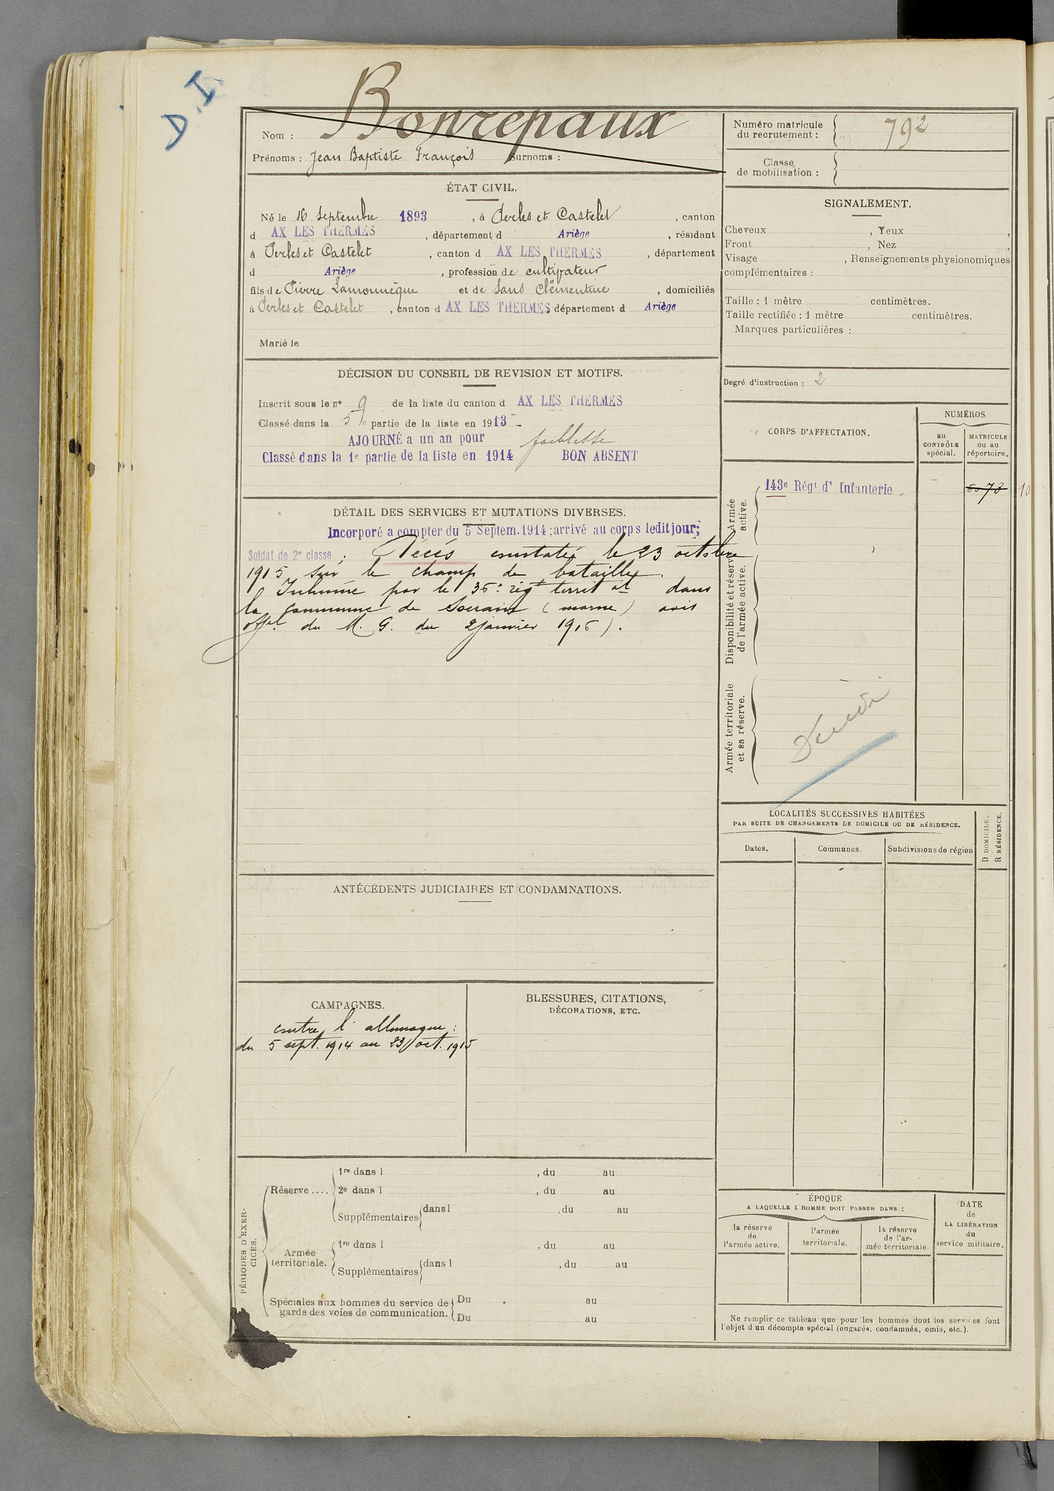 D. I.
Nom : Bonrepaux
Prénoms : Jean Baptiste François Surnoms :
Numéro matricule du recrutement : 792
Classe de mobilisation :
ÉTAT CIVIL.
Né le 16 Septembre 1893, à Perles et Castelet, canton
d AX LES THERMES, département d Ariège, résidant
à Perles et Castelet, canton d AX LES THERMES, département
d Ariège, profession de cultivateur
fils de Pierre Lamonnègue et de Sans Clémentine, domiciliés
à Perles et Castelet, canton d AX LES THERMES, département d Ariège
Marié le
SIGNALEMENT.
Cheveux , Yeux ,
Front , Nez ,
Visage , Renseignements physionomiques
complémentaires :
Taille : 1 mètre centimètres.
Taille rectifiée : 1 mètre centimètres.
Marques particulières :
Degré d'instruction : 2
DÉCISION DU CONSEIL DE REVISION ET MOTIFS.
Inscrit sous le nº 9 de la liste du canton d AX LES THERMES
Classé dans la 5e partie de la liste en 1913
AJOURNÉ a un an pour faiblesse
Classé dans la 1e partie de la liste en 1914 BON ABSENT
DÉTAIL DES SERVICES ET MUTATIONS DIVERSES.
Incorporé a compter du 5 Septem. 1914; arrivé au corps ledit jour;
Soldat de 2e classe ; Décès constaté le 23 octobre
1915 sur le champ de bataille.
Inhumé par le 35e régt territal dans
la commune de Souain (marne) avis
offel du M. G. du 2 janvier 1916).
CORPS D'AFFECTATION.
NUMÉROS
AU CONTRÔLE spécial.
MATRICULE OU AU répertoire.
Armée active.
143e Régt d' Infanterie
10
Disponibilité et réserve de l'armée active.
Armée territoriale et sa réserve.
Décédé
LOCALITÉS SUCCESSIVES HABITÉES
PAR SUITE DE CHANGEMENTS DE DOMICILE OU DE RÉSIDENCE.
Dates.
Communes.
Subdivisions de région
D DOMICILE.
R RÉSIDENCE.
ANTÉCÉDENTS JUDICIAIRES ET CONDAMNATIONS.
CAMPAGNES.
contre l'allemagne :
du 5 sept. 1914 au 23 oct. 1915
BLESSURES, CITATIONS,
DÉCORATIONS, ETC.
PÉRIODES D'EXERCICES.
Réserve ....
1re dans l , du au
2e dans l , du au
Supplémentaires dans l , du au
Armée territoriale.
1re dans l , du au
Supplémentaires dans l , du au
Spéciales aux hommes du service de
garde des voies de communication.
Du au
Du au
ÉPOQUE
A LAQUELLE L'HOMME DOIT PASSER DANS :
la réserve de l'armée active.
l'armée territoriale.
la réserve de l'armée territoriale.
DATE de LA LIBÉRATION du service militaire.
Ne remplir ce tableau que pour les hommes dont les services font
l'objet d'un décompte spécial (engagés, condamnés, omis, etc.).